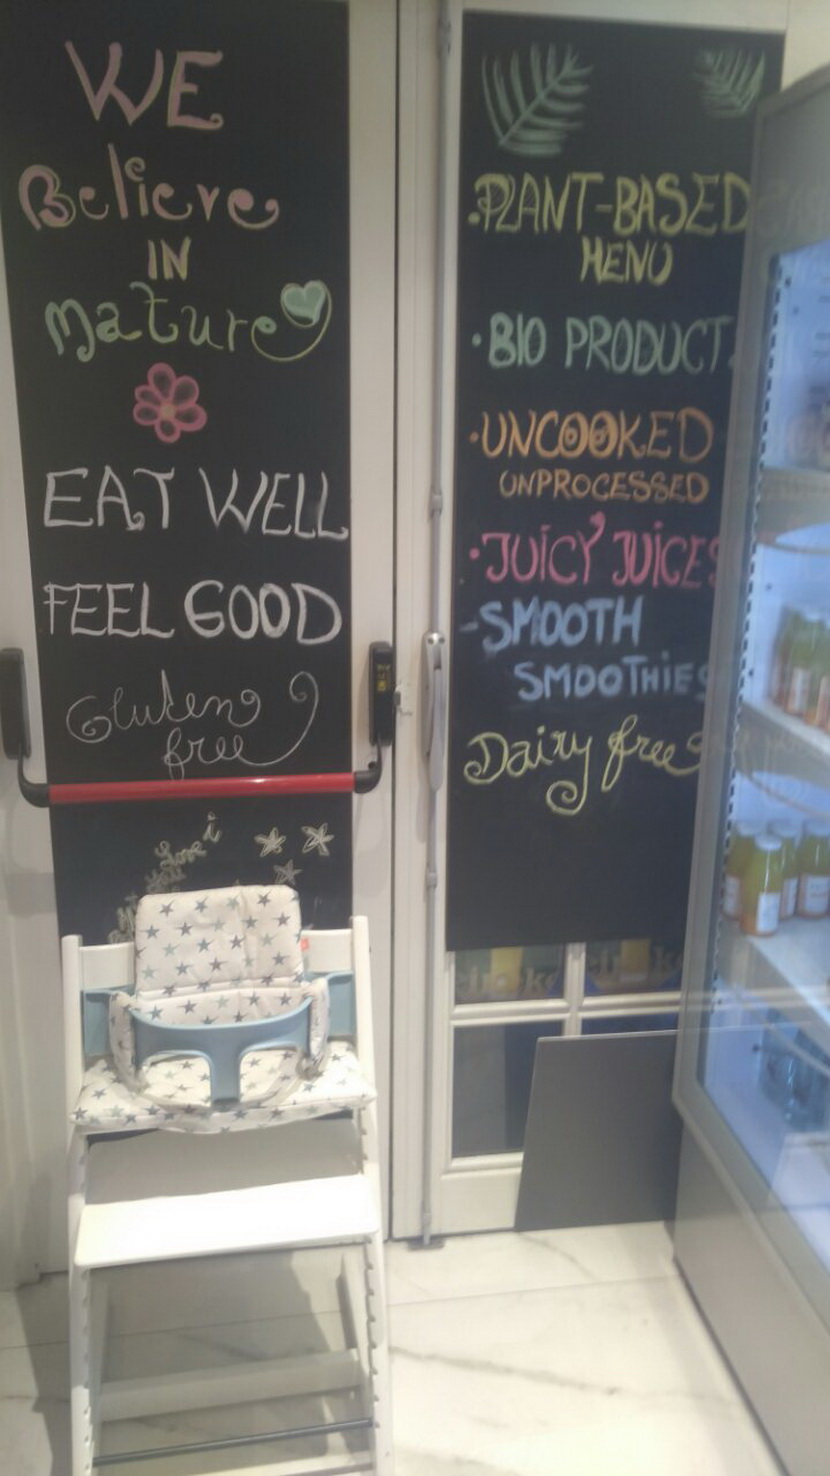 WE
Believe
IN
Nature
EAT WELL
FEEL GOOD
Gluten
free
i
Love
you
•PLANT-BASED
MENU
•BIO PRODUCT
•UNCOOKED
UNPROCESSED
•JUICY JUICES
-SMOOTH
SMOOTHIES
Dairy free